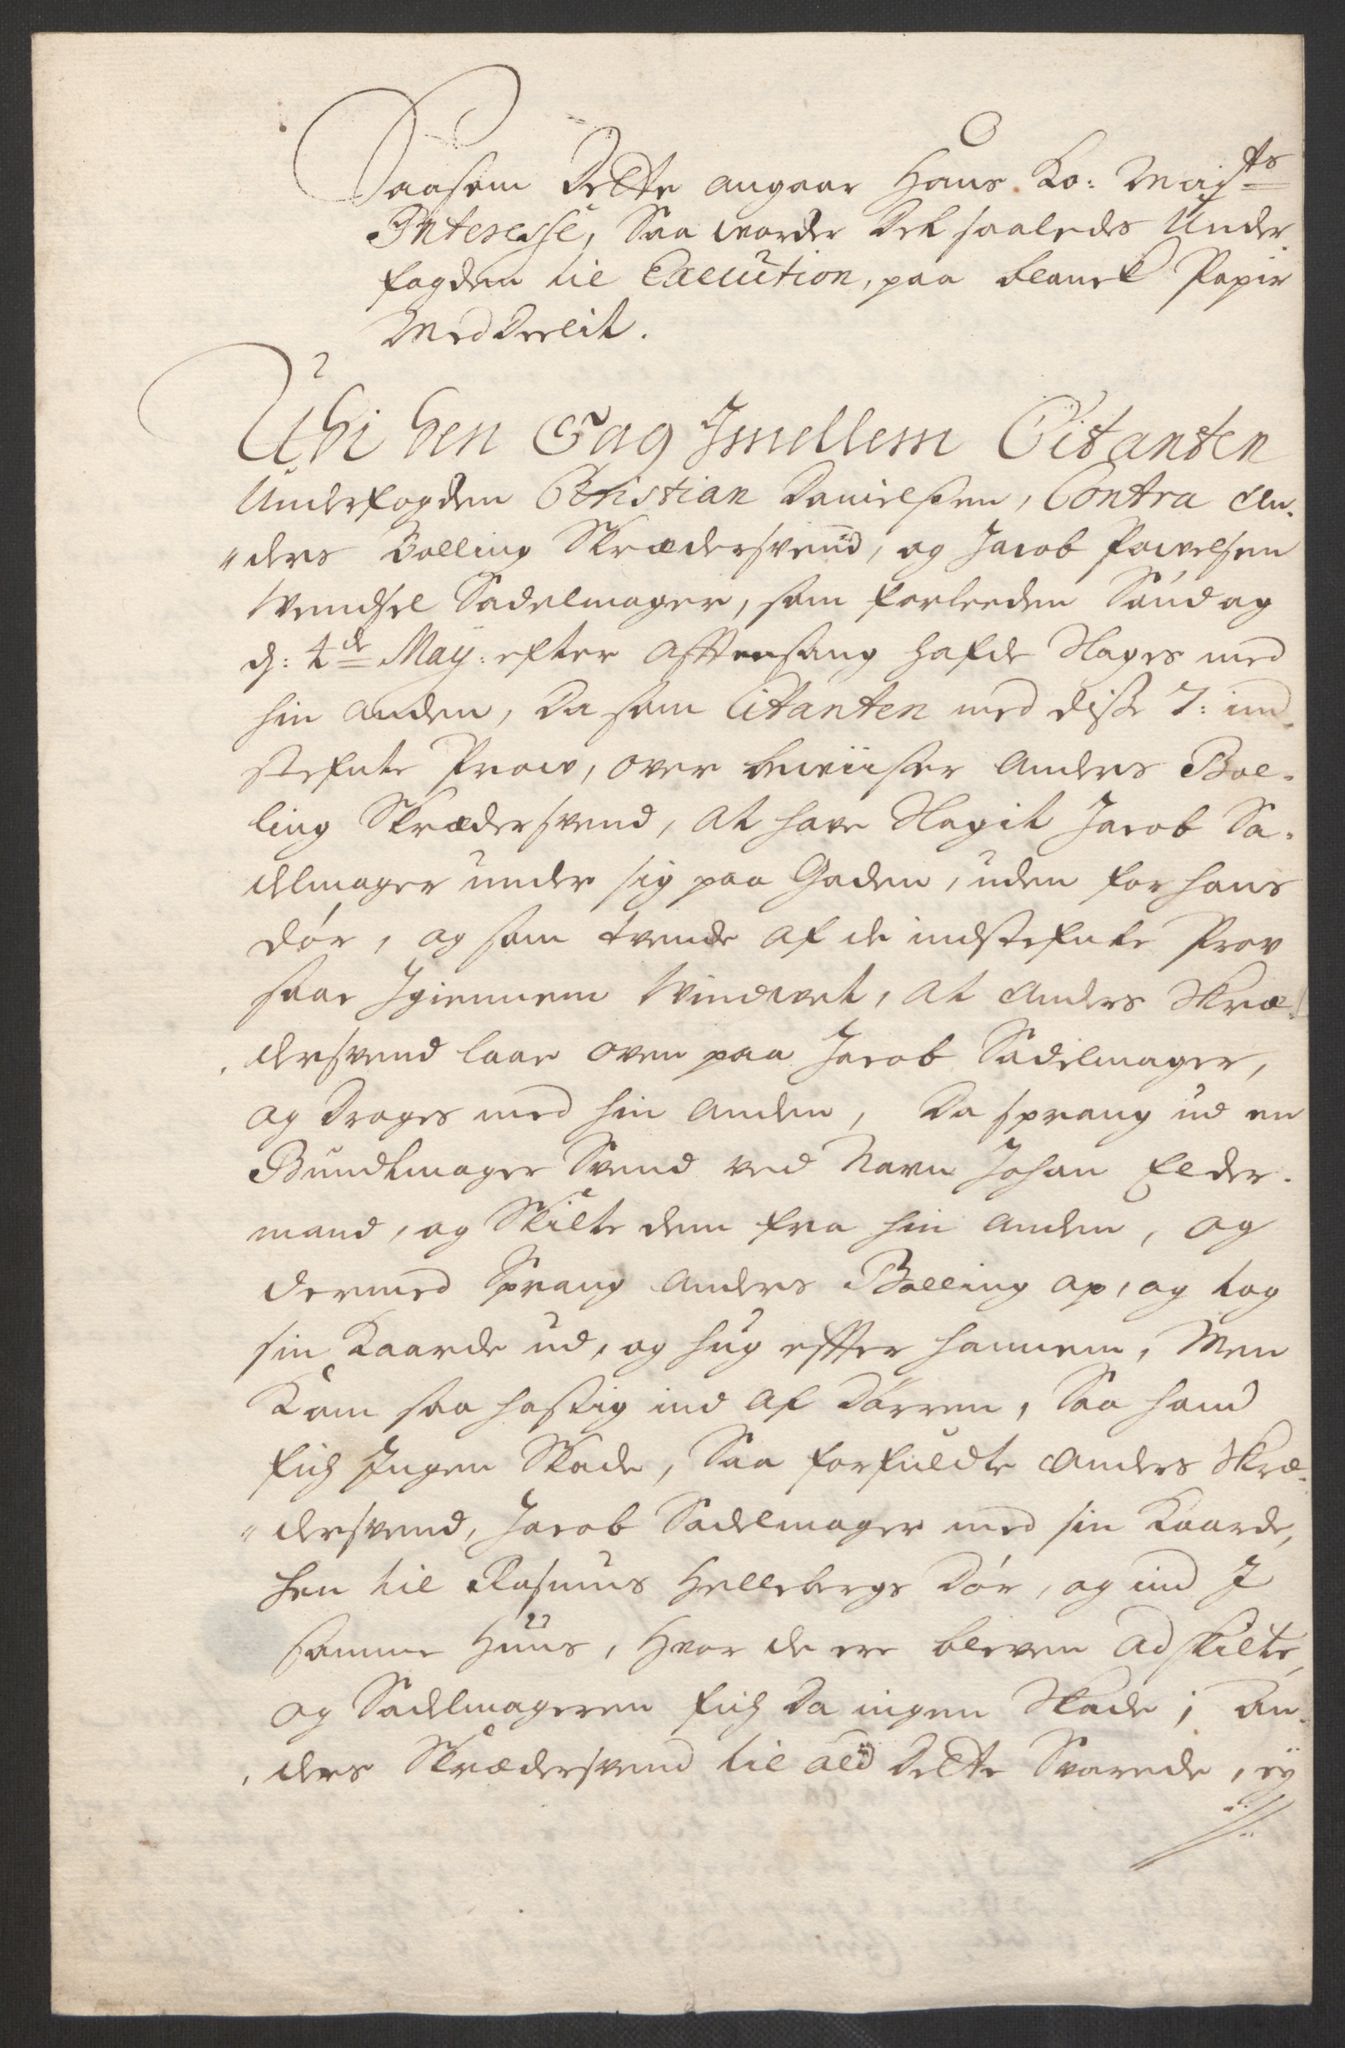 Saasom Dette angaar Hans Ko: Maj^ts
Interesse, Saa worder Det saaledes Under
fogden til Execution, paa blanck Papir
Meddeelit.
Udi den Sag Imellem Citanten
Underfogden Christian Danielsen, Contra An-
"ders Bolling Skrædersvend, og Jacob Powelsen
Wendsel Sadelmager, som forleeden Søndag
d: 4^de May: efter Afftensang hafde Slages med
hin anden, Da som Citanten med disse 7: ind-
stefnte Prow, over bewiiser Anders Bol-
ling Skrædersvend, at have Slagit Jacob Sa-
delmager under sig paa Gaden, uden for hans
Dør, og som tvende af de indstefnte Prov
saae Igiennem Winduet, at Anders Skræ-
dersvend laae oven paa Jacob Sadelmager,
og Droges med hin anden, Da sprang ud en
Bundtmager Svend ved Navn Johan Elder-
mand, og Skilte dem fra hin anden, og
dermed Sprang Anders Bolling op, og tog
sin Kaarde ud, og hug effter hannem, Men
Kom saa hastig ind af Dørren, Saa hand
fich Ingen Skade, Saa forfuldte Anders Skræ-
"dersvend, Jacob Sadelmager med sin Kaarde,
hen til Rasmus Hellebergs Dør, og ind I
samme Huus, Hvor de ere bleven adskilte,
og Sadlmageren fich Da ingen Skade; An-
ders Skrædersvend til ald Dette Svarede, ey